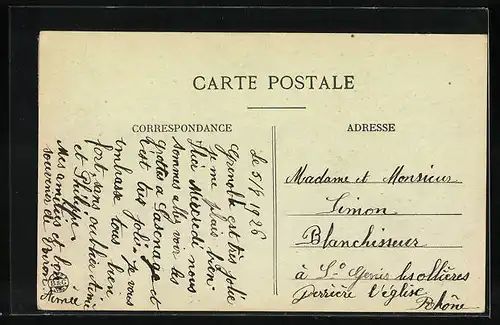 CARTE POSTALE
CORRESPONDANCE
ADRESSE
Le 5/8 1926
Grenoble est très jolie
je me plais bien
Hier Mercredi nous
sommes allés voir les
Grottes a Sasenage et
c'est très jolie je vous
embrasse tous bien
fort, sans oublier Aimé
et Philippe.
Mes amitiés et bon
souvenir de Voiron
Aimée
Madame et Monsieur
Simon
Blanchisseur
à St Genis les ollières
Derrière l'église
Rhône